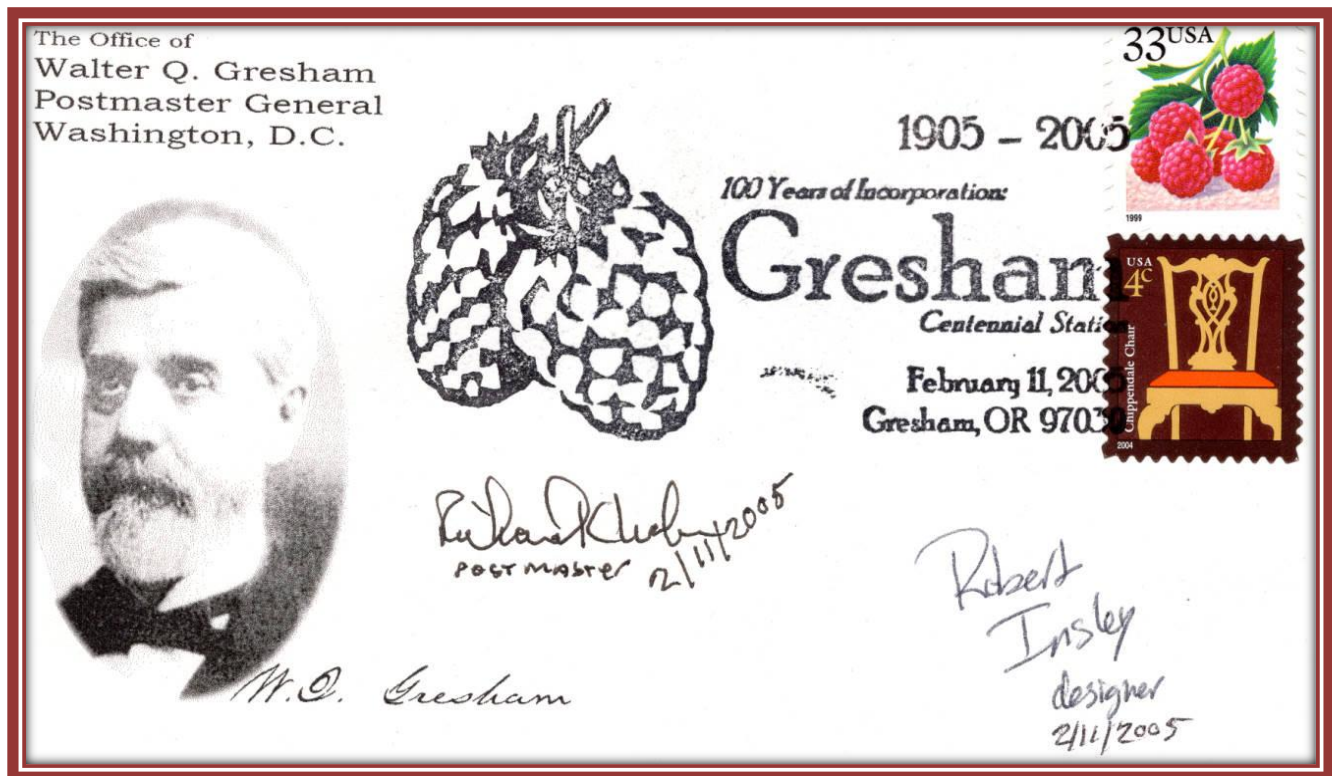 The Office of
Walter Q. Gresham
Postmaster General
Washington, D.C.
33USA
1999
1905 – 2005
100 Years of Incorporation:
Gresham
Centennial Station
February 11, 2005
Gresham, OR 97030
USA
4c
Chippendale Chair
2004
Richard
POSTMASTER 2/11/2005
Robert
Insley
designer
2/11/2005
W.Q. Gresham